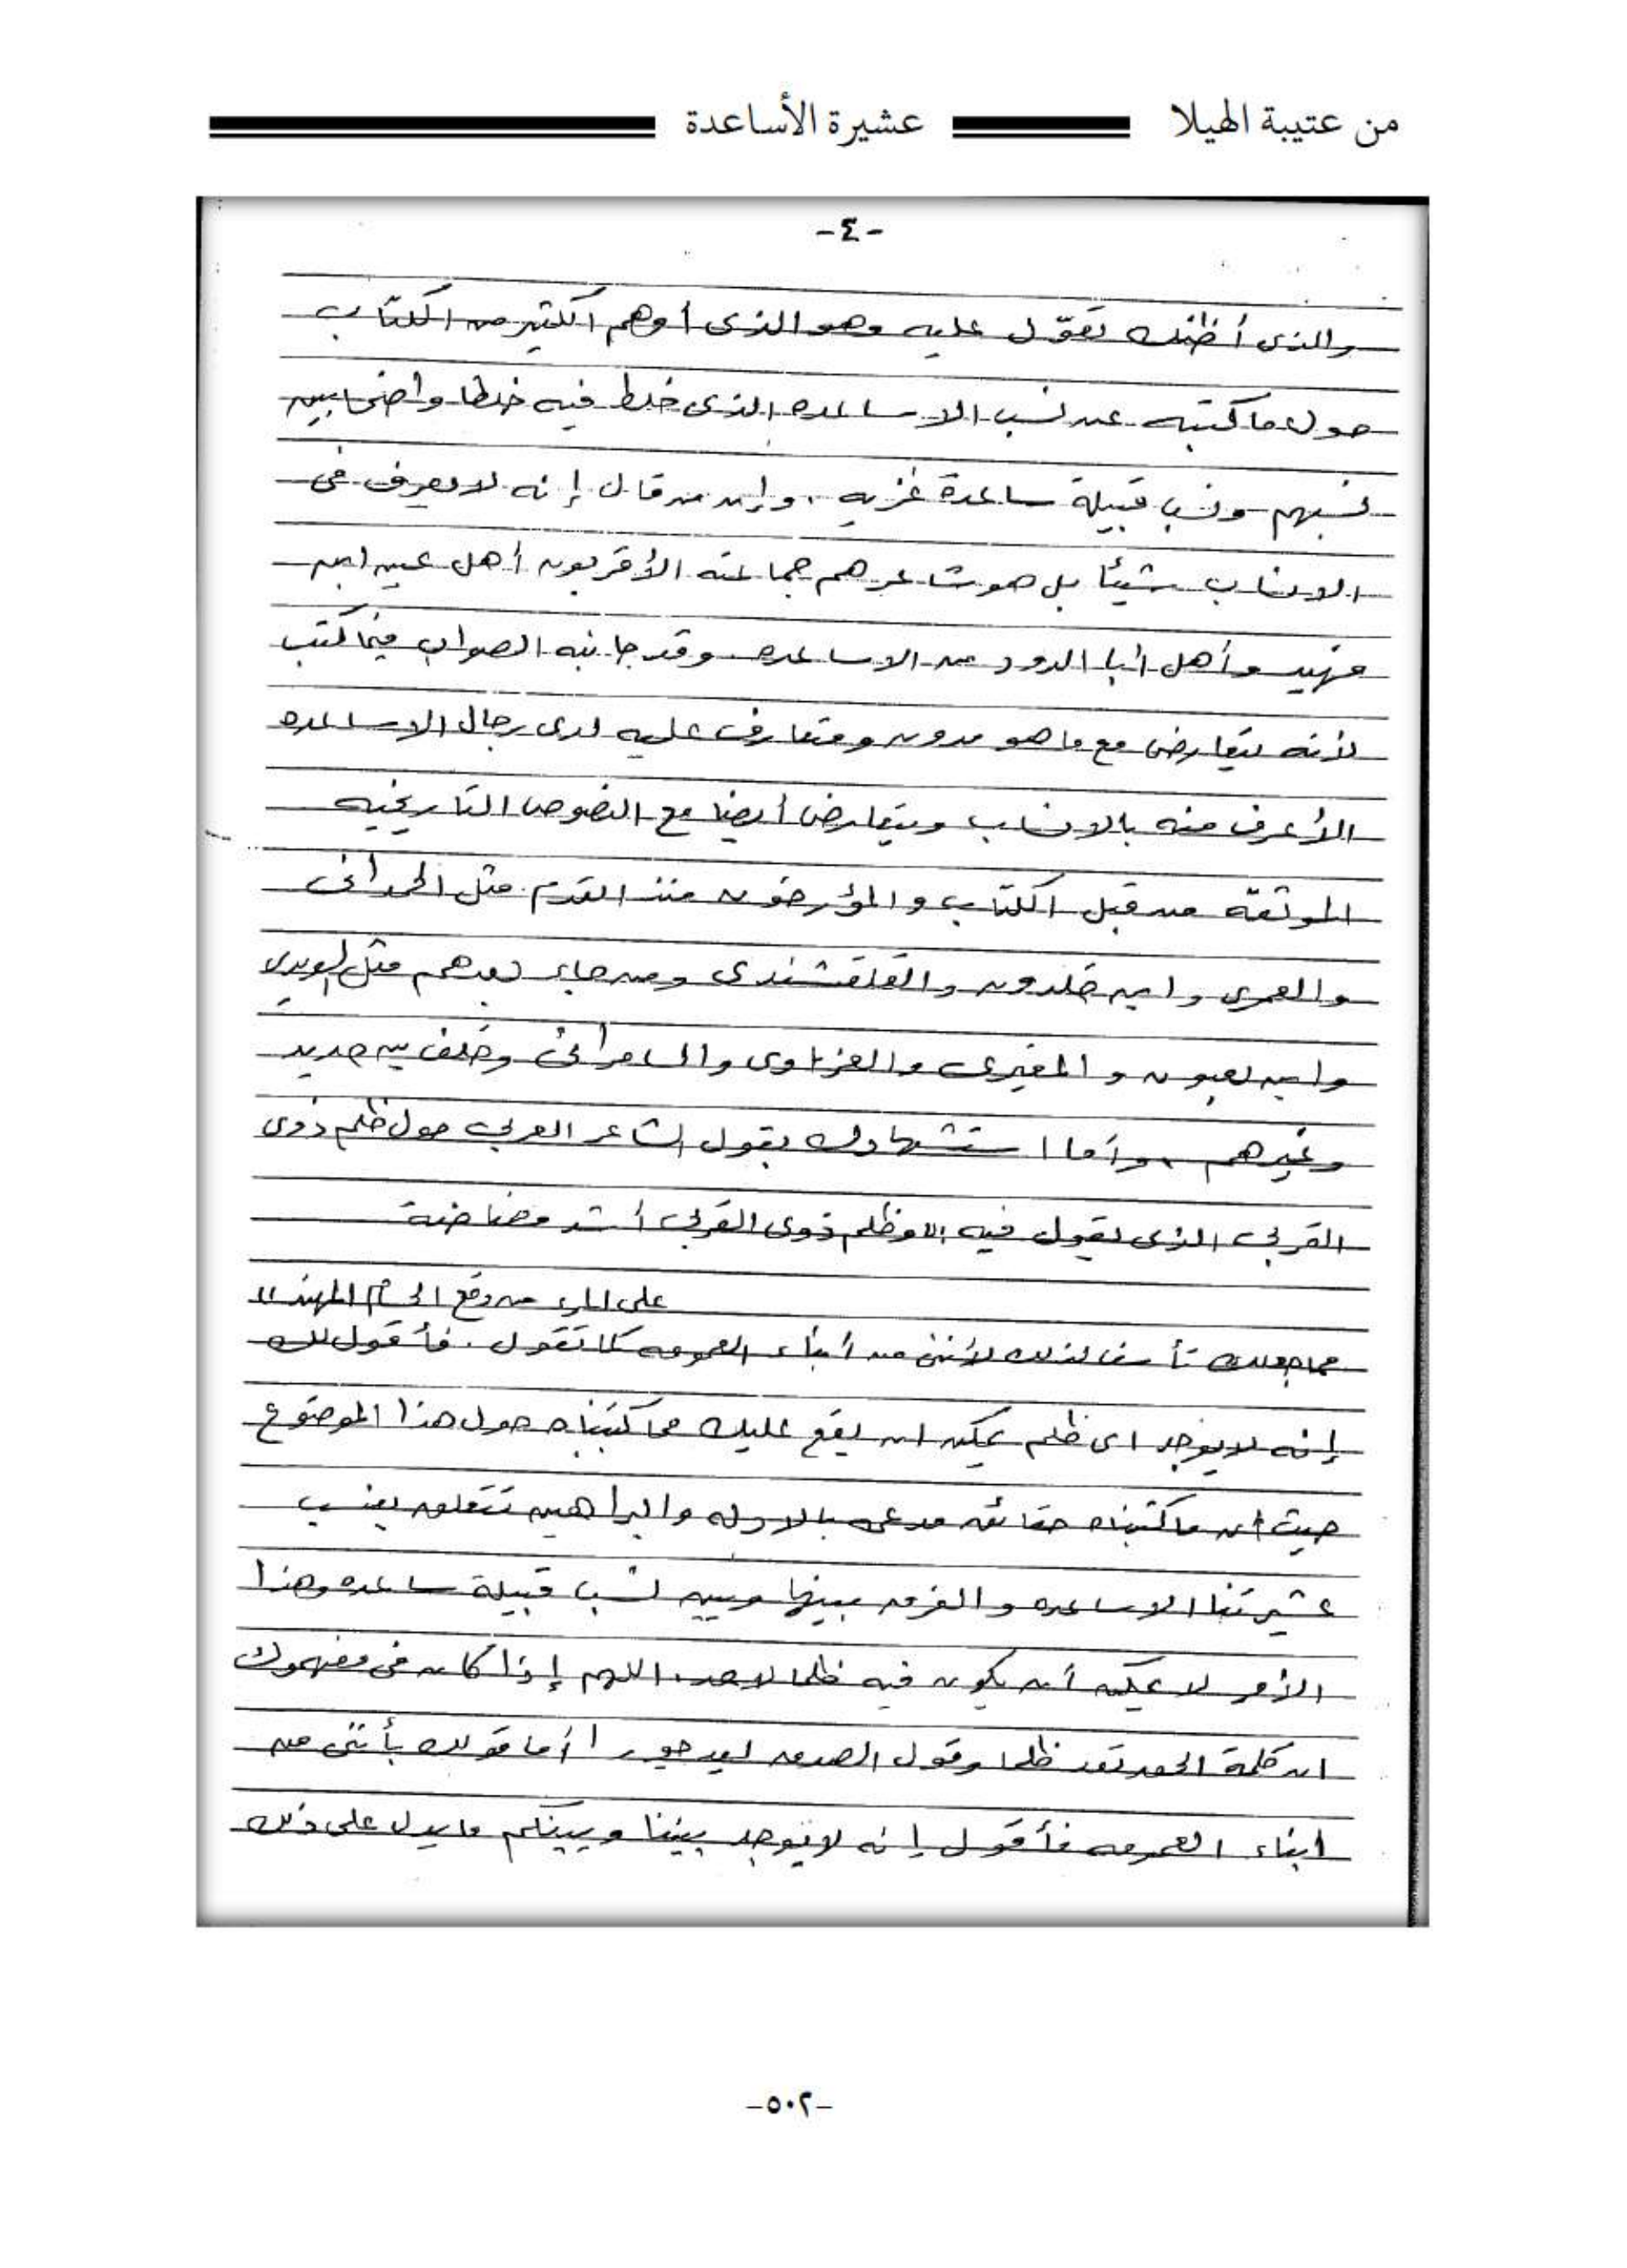 من عتيبة الهيلا
عشيرة الأساعدة
-٤-
والذى أظنك تعوّل عليه وهو الذى أوهم الكثير من الكتّاب
حول ما كتبه عن نسب الاساعده الذى خلط فيه خلطا واضحا بين
نسبهم ونسب قبيلة ساعدة غزيه ، وإبن من قال إنه لا يعرف فى
الانساب شيئاً بل هو شاعرهم جماعته الأقربون أهل عين ابن
فهيد وأهل أبا الدود من الاساعده وقد جانبه الصواب فيما كتب
لأنه يتعارض مع ما هو مدون ومتعارف عليه لدى رجال الاساعده
الأعرف منه بالانساب ويتعارض أيضا مع النصوص التاريخيه
الموثقة من قبل الكتّاب والمؤرخون منذ القدم مثل الحمدانى
والعمرى وابن خلدون والقلقشندى ومن جاء بعدهم مثل
وابن لعبون والمغيرى والعزاوى والسامرائى وخلف بن حديد
وغيرهم ، وأما استشهادك بقول الشاعر العربى حول ظلم ذوى
القربى الذى يقول فيه " وظلم ذوى القربى أشد مضاضة
على المرء من وقع الحسام المهند "
مما جعلك تأسف لذلك لأننى من أبناء العمومه كما تقول . فأقول لك
إنه لا يوجد اى ظلم يمكن ان يقع عليك مما كتبناه حول هذا الموضوع
حيث ان ما كتبناه حقائق مدعمه بالادله والبراهين تتعلق بنسب
عشيرتنا الاساعده والفرق بينها وبين نسب قبيلة ساعده وهذا
الأمر لا يمكن أن يكون فيه ظلما لاحد . اللهم إذا كان فى مفهومك
ان كلمة الحق تعد ظلما وقول الصدق يعد جورا أما قولك بأننى من
ابناء العمومه فأقول إنه لا يوجد بيننا وبينكم ما يدل على ذلك
-٥٠٢-